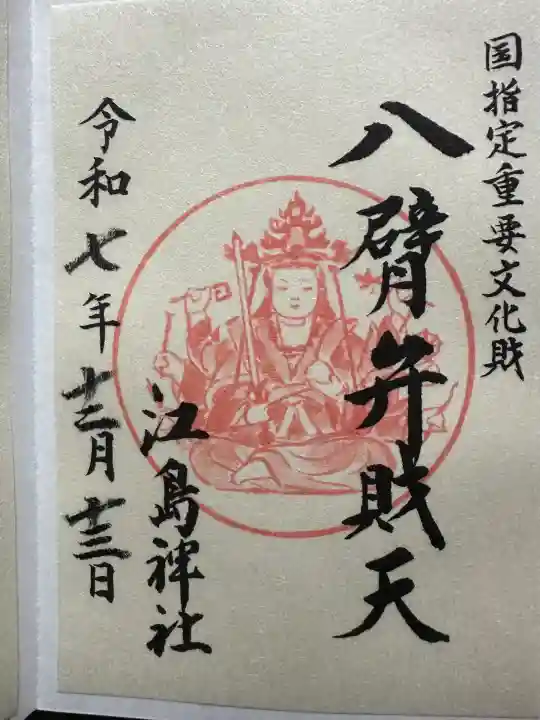 国指定重要文化財
八臂弁財天
江島神社
令和七年十二月十三日